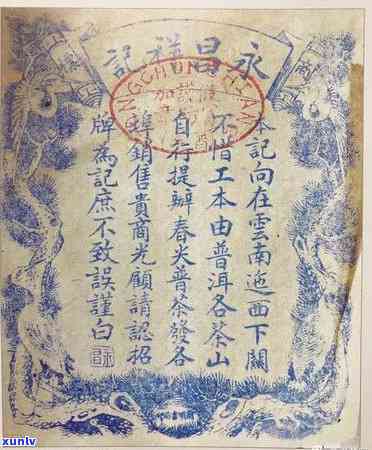 商標
永昌祥記
本記向在雲南迤西下關
不惜工本由普洱各茶山
自行提辦春尖普茶發各
埠銷售貴商光顧請認招
牌為記庶不致誤謹白
xunlv